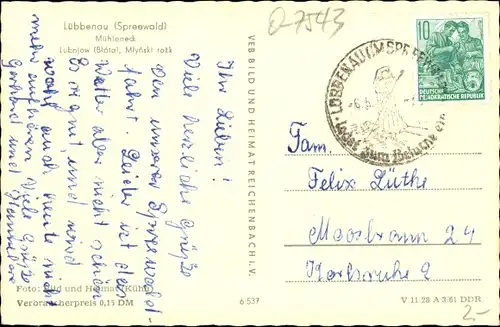 Lübbenau (Spreewald)
Mühleneck
Lubnjow (Błota), Młyński rožk
Q-7543
10
DEUTSCHE
DEMOKRATISCHE REPUBLIK
LÜBBENAU (IM SPREEWALD)
Ihr Lieben!
Viele herzliche Grüße
von unserer Spreewald-
fahrt. Leider ist das
Wetter aber nicht schön
Es regnet und wird
wohl auch heute nicht
mehr aufhören. Viele Grüße
Gerhard und
VEB BILD UND HEIMAT REICHENBACH I. V.
Fam.
Felix Lüthe
Moosbrann 24
Karlsruhe 21
Foto: Bild und Heimat (Kühn)
Verbraucherpreis 0,15 DM
6 537
V 11 28 A 3/61 DDR
2-